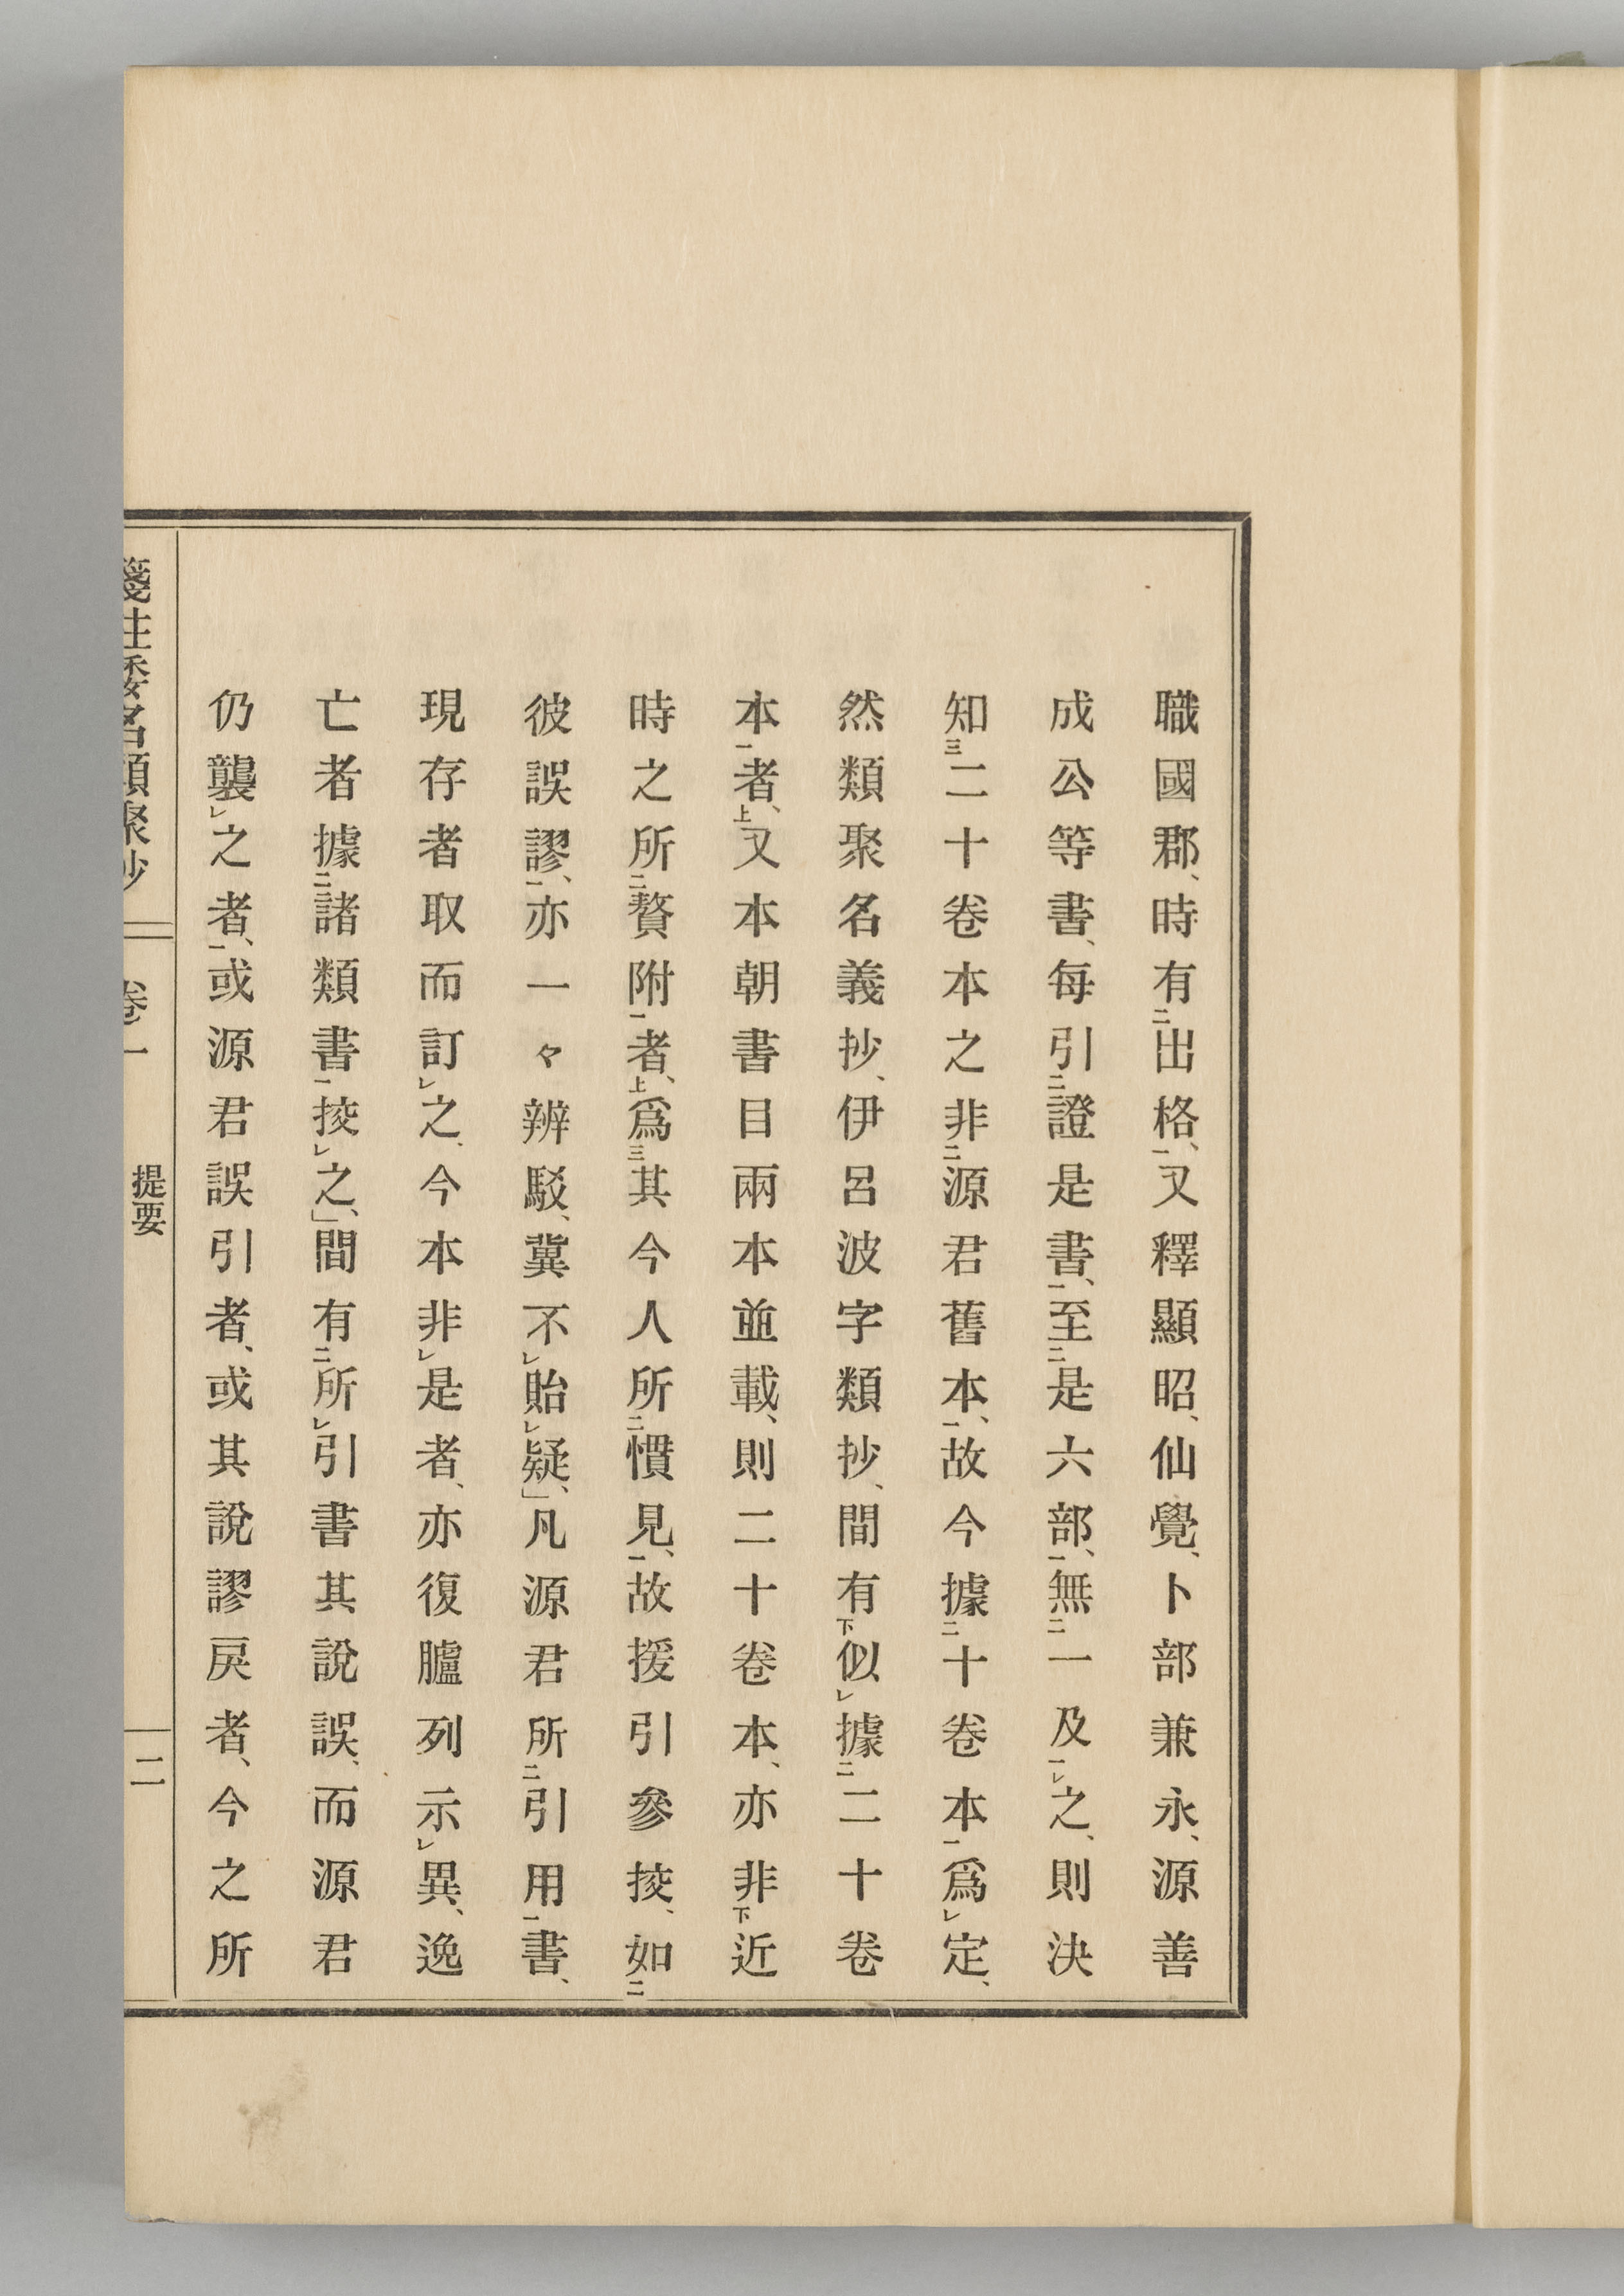 職國郡、時有㆓出格、㆒又釋顯昭、仙覺、卜部兼永、源善
成公等書、每引㆓證是書、㆒至㆓是六部、㆒無㆓一及㆒㆑之、則決
知㆔二十卷本之非㆓源君舊本、㆒故今據㆓十卷本㆒爲㆑定、
然類聚名義抄、伊呂波字類抄、間有㆘似㆑據㆓二十卷
本㆒者、㆖又本朝書目兩本並載、則二十卷本、亦非㆘近
時之所㆓贅附㆒者、㆖爲㆔其今人所㆓慣見、㆒故援引參挍、如㆓
彼誤謬、㆒亦一々辨駁、冀不㆑貽㆑疑、」凡源君所㆓引用㆒書、
現存者取而訂㆑之、今本非㆑是者、亦復臚列示㆑異、逸
亡者據㆓諸類書㆒挍㆑之、」間有㆓所㆑引書其說誤、而源君
仍襲㆑之者、㆒或源君誤引者、或其說謬戾者、今之所
箋注倭名類聚抄 卷一 提要 二